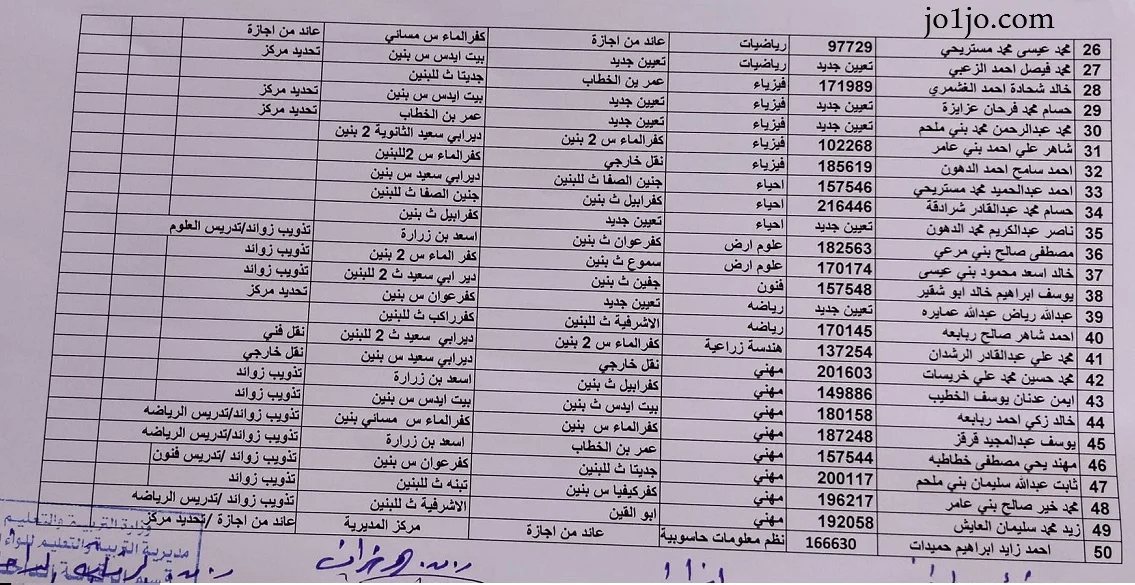 jo1jo.com
26 محمد عيسى محمد مستريحي 97729 رياضيات عائد من اجازة كفرالماء س مسائي عائد من اجازة
27 محمد فيصل احمد الزعبي تعيين جديد رياضيات تعيين جديد بيت ايدس س بنين تحديد مركز
28 خالد شحادة احمد الغشمري 171989 فيزياء عمر بن الخطاب جديتا ث للبنين
29 حسام محمد فرحان عزايزة تعيين جديد فيزياء تعيين جديد بيت ايدس س بنين تحديد مركز
30 محمد عبدالرحمن محمد بني ملحم تعيين جديد فيزياء تعيين جديد عمر بن الخطاب تحديد مركز
31 شاهر علي احمد بني عامر 102268 فيزياء كفرالماء س 2 بنين ديرابي سعيد الثانوية 2 بنين
32 احمد سامح احمد الدهون 185619 فيزياء نقل خارجي كفرالماء س 2للبنين
33 احمد عبدالحميد محمد مستريحي 157546 احياء جنين الصفا ث للبنين ديرابي سعيد س بنين
34 حسام محمد عبدالقادر شرادقة 216446 احياء كفرابيل ث بنين جنين الصفا ث للبنين
35 ناصر عبدالكريم محمد الدهون تعيين جديد احياء تعيين جديد كفرابيل ث بنين
36 مصطفى صالح بني مرعي 182563 علوم ارض كفرعوان ث بنين اسعد بن زرارة تذويب زوائد/تدريس العلوم
37 خالد اسعد محمود بني عيسى 170174 علوم ارض سموع ث بنين كفر الماء س 2 بنين تذويب زوائد
38 يوسف ابراهيم خالد ابو شقير 157548 فنون جفين ث بنين دير ابي سعيد ث 2 للبنين تذويب زوائد
39 عبدالله رياض عبدالله عمايره تعيين جديد رياضه تعيين جديد كفرعوان س بنين تحديد مركز
40 احمد شاهر صالح ربابعه 170145 رياضه الاشرفية ث للبنين كفرراكب ث للبنين
41 محمد علي عبدالقادر الرشدان 137254 هندسة زراعية كفرالماء س 2 بنين ديرابي سعيد ث 2 للبنين نقل فني
42 محمد حسين محمد علي خريسات 201603 مهني نقل خارجي ديرابي سعيد س بنين نقل خارجي
43 ايمن عدنان يوسف الخطيب 149886 مهني كفرابيل ث بنين اسعد بن زرارة تذويب زوائد
44 خالد زكي احمد ربابعه 180158 مهني بيت ايدس ث بنين بيت ايدس س بنين تذويب زوائد
45 يوسف عبدالمجيد قرقز 187248 مهني كفرالماء س بنين كفرالماء س مسائي بنين تذويب زوائد/تدريس الرياضه
46 مهند يحي مصطفى خطاطبه 157544 مهني عمر بن الخطاب اسعد بن زرارة تذويب زوائد/تدريس الرياضه
47 ثابت عبدالله سليمان بني ملحم 200117 مهني جديتا ث للبنين كفرعوان س بنين تذويب زوائد /تدريس فنون
48 محمد خير صالح بني عامر 196217 مهني كفركيفيا س بنين تبنه ث للبنين تذويب زوائد
49 زيد محمد سليمان العايش 192058 مهني ابو القين الاشرفية ث للبنين تذويب زوائد /تدريس الرياضه
50 احمد زايد ابراهيم حميدات 166630 نظم معلومات حاسوبية عائد من اجازة مركز المديرية عائد من اجازة /تحديد مركز
وزارة التربية والتعليم
مديرية التربية والتعليم للواء